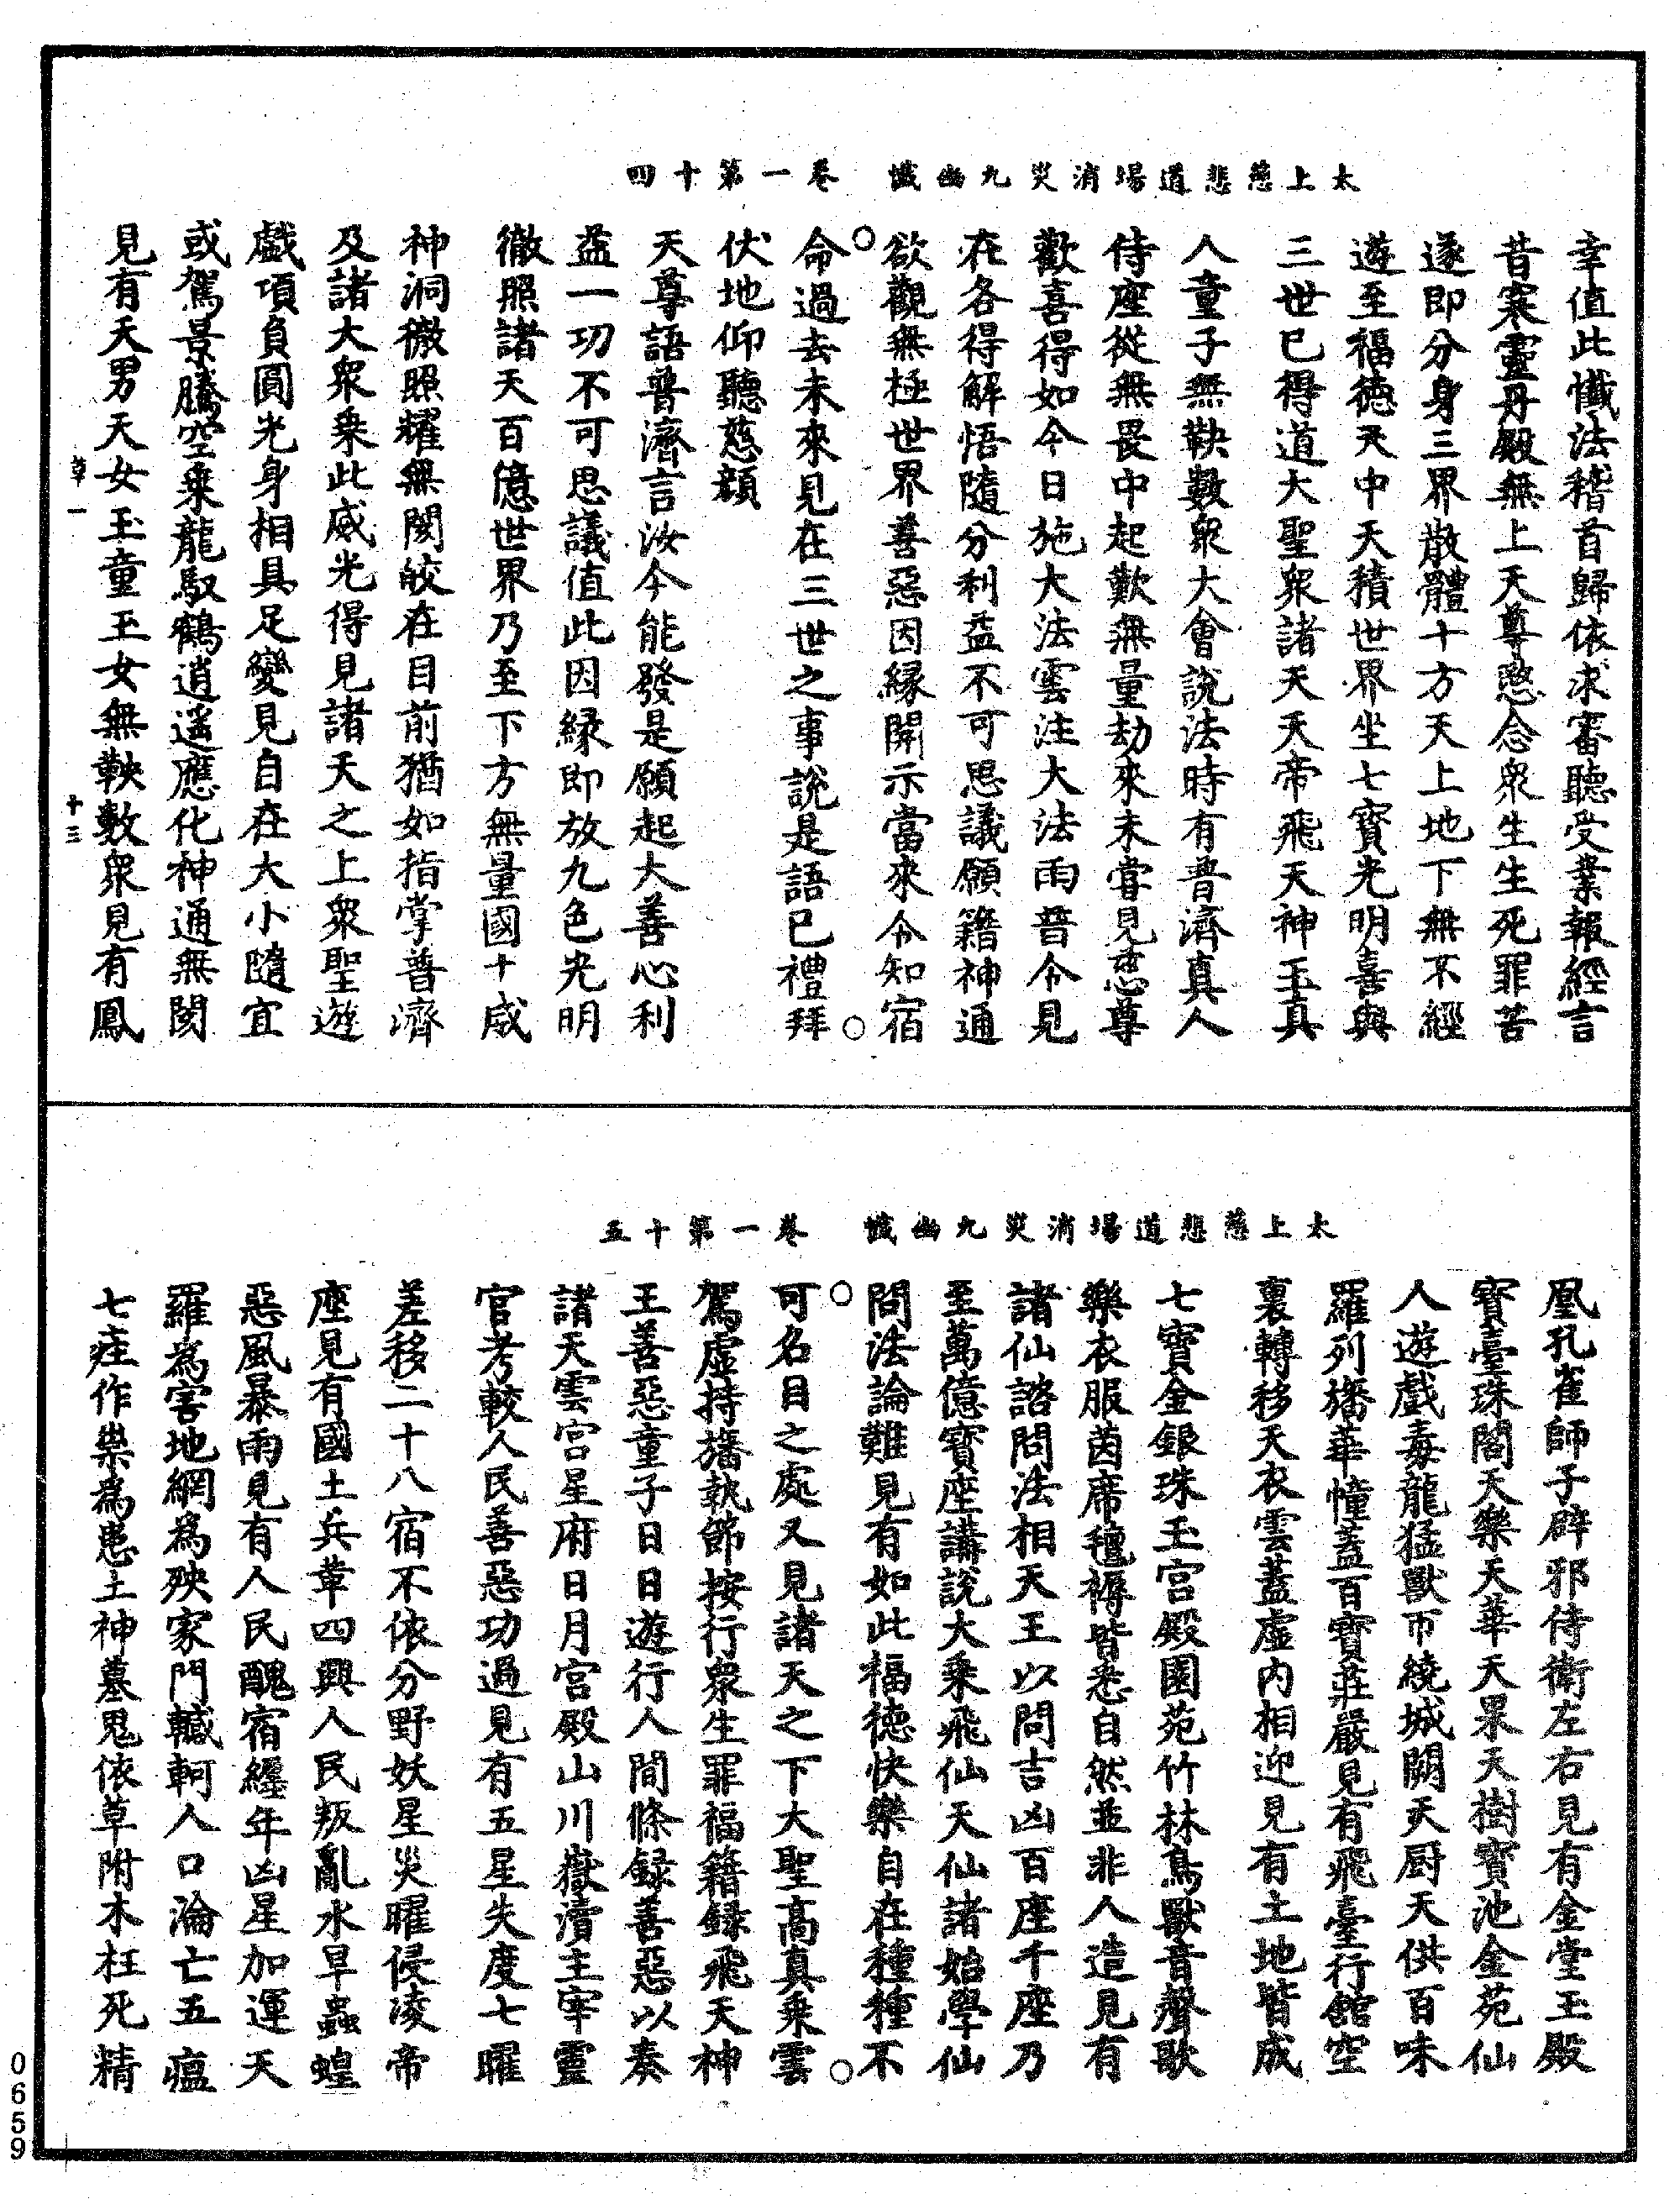 太上慈悲道場消災九幽懺　卷一第十四
幸值此懺法稽首歸依求審聽受業報經言
昔寒靈丹殿無上天尊愍念衆生生死罪苦
遂即分身三界散體十方天上地下無不經
遊至福德天中天積世界坐七寶光明喜與
三世已得道大聖衆諸天天帝飛天神王真
人童子無鞅數衆大會說法時有普濟真人
侍座從無畏中起歎無量劫來未嘗見慈尊
歡喜得如今日施大法雲注大法雨普令見
在各得解悟隨分利益不可思議願籍神通
欲觀無極世界善惡因緣開示當來令知宿
命過去未來見在三世之事說是語已禮拜
伏地仰聽慈顏
天尊語普濟言汝今能發是願起大善心利
益一切不可思議值此因緣即放九色光明
徹照諸天百億世界乃至下方無量國十威
神洞徹照耀無閡皎在目前猶如指掌普濟
及諸大衆乘此威光得見諸天之上衆聖遊
戲項負圓光身相具足變見自在大小隨宜
或駕景騰空乘龍馭鶴逍遥應化神通無閡
見有天男天女玉童玉女無鞅數衆見有鳳
草一　十三
太上慈悲道場消災九幽懺　卷一第十五
凰孔雀師子辟邪侍衛左右見有金堂玉殿
寶臺珠閣天樂天華天果天樹寶池金苑仙
人遊戲毒龍猛獸帀繞城闕天厨天供百味
羅列旛華幢蓋百寶莊嚴見有飛臺行館空
裏轉移天衣雲蓋虛内相迎見有土地皆成
七寶金銀珠玉宮殿園苑竹林鳥獸音聲歌
樂衣服茵席氊褥皆悉自然並非人造見有
諸仙諮問法相天王以問吉凶百座千座乃
至萬億寶座講說大乘飛仙天仙諸始學仙
問法論難見有如此福德快樂自在種種不
可名目之處又見諸天之下大聖高真乘雲
駕虛持旛執節按行衆生罪福籍録飛天神
王善惡童子日日遊行人間條録善惡以奏
諸天雲宮星府日月宮殿山川嶽瀆主宰靈
官考較人民善惡功過見有五星失度七曜
差移二十八宿不依分野妖星災曜侵凌帝
座見有國土兵革四興人民叛亂水旱蟲蝗
惡風暴雨見有人民醜宿纏年凶星加運天
羅為害地網為殃家門轗軻人口淪亡五瘟
七疰作祟為患土神墓鬼依草附木枉死精
0659